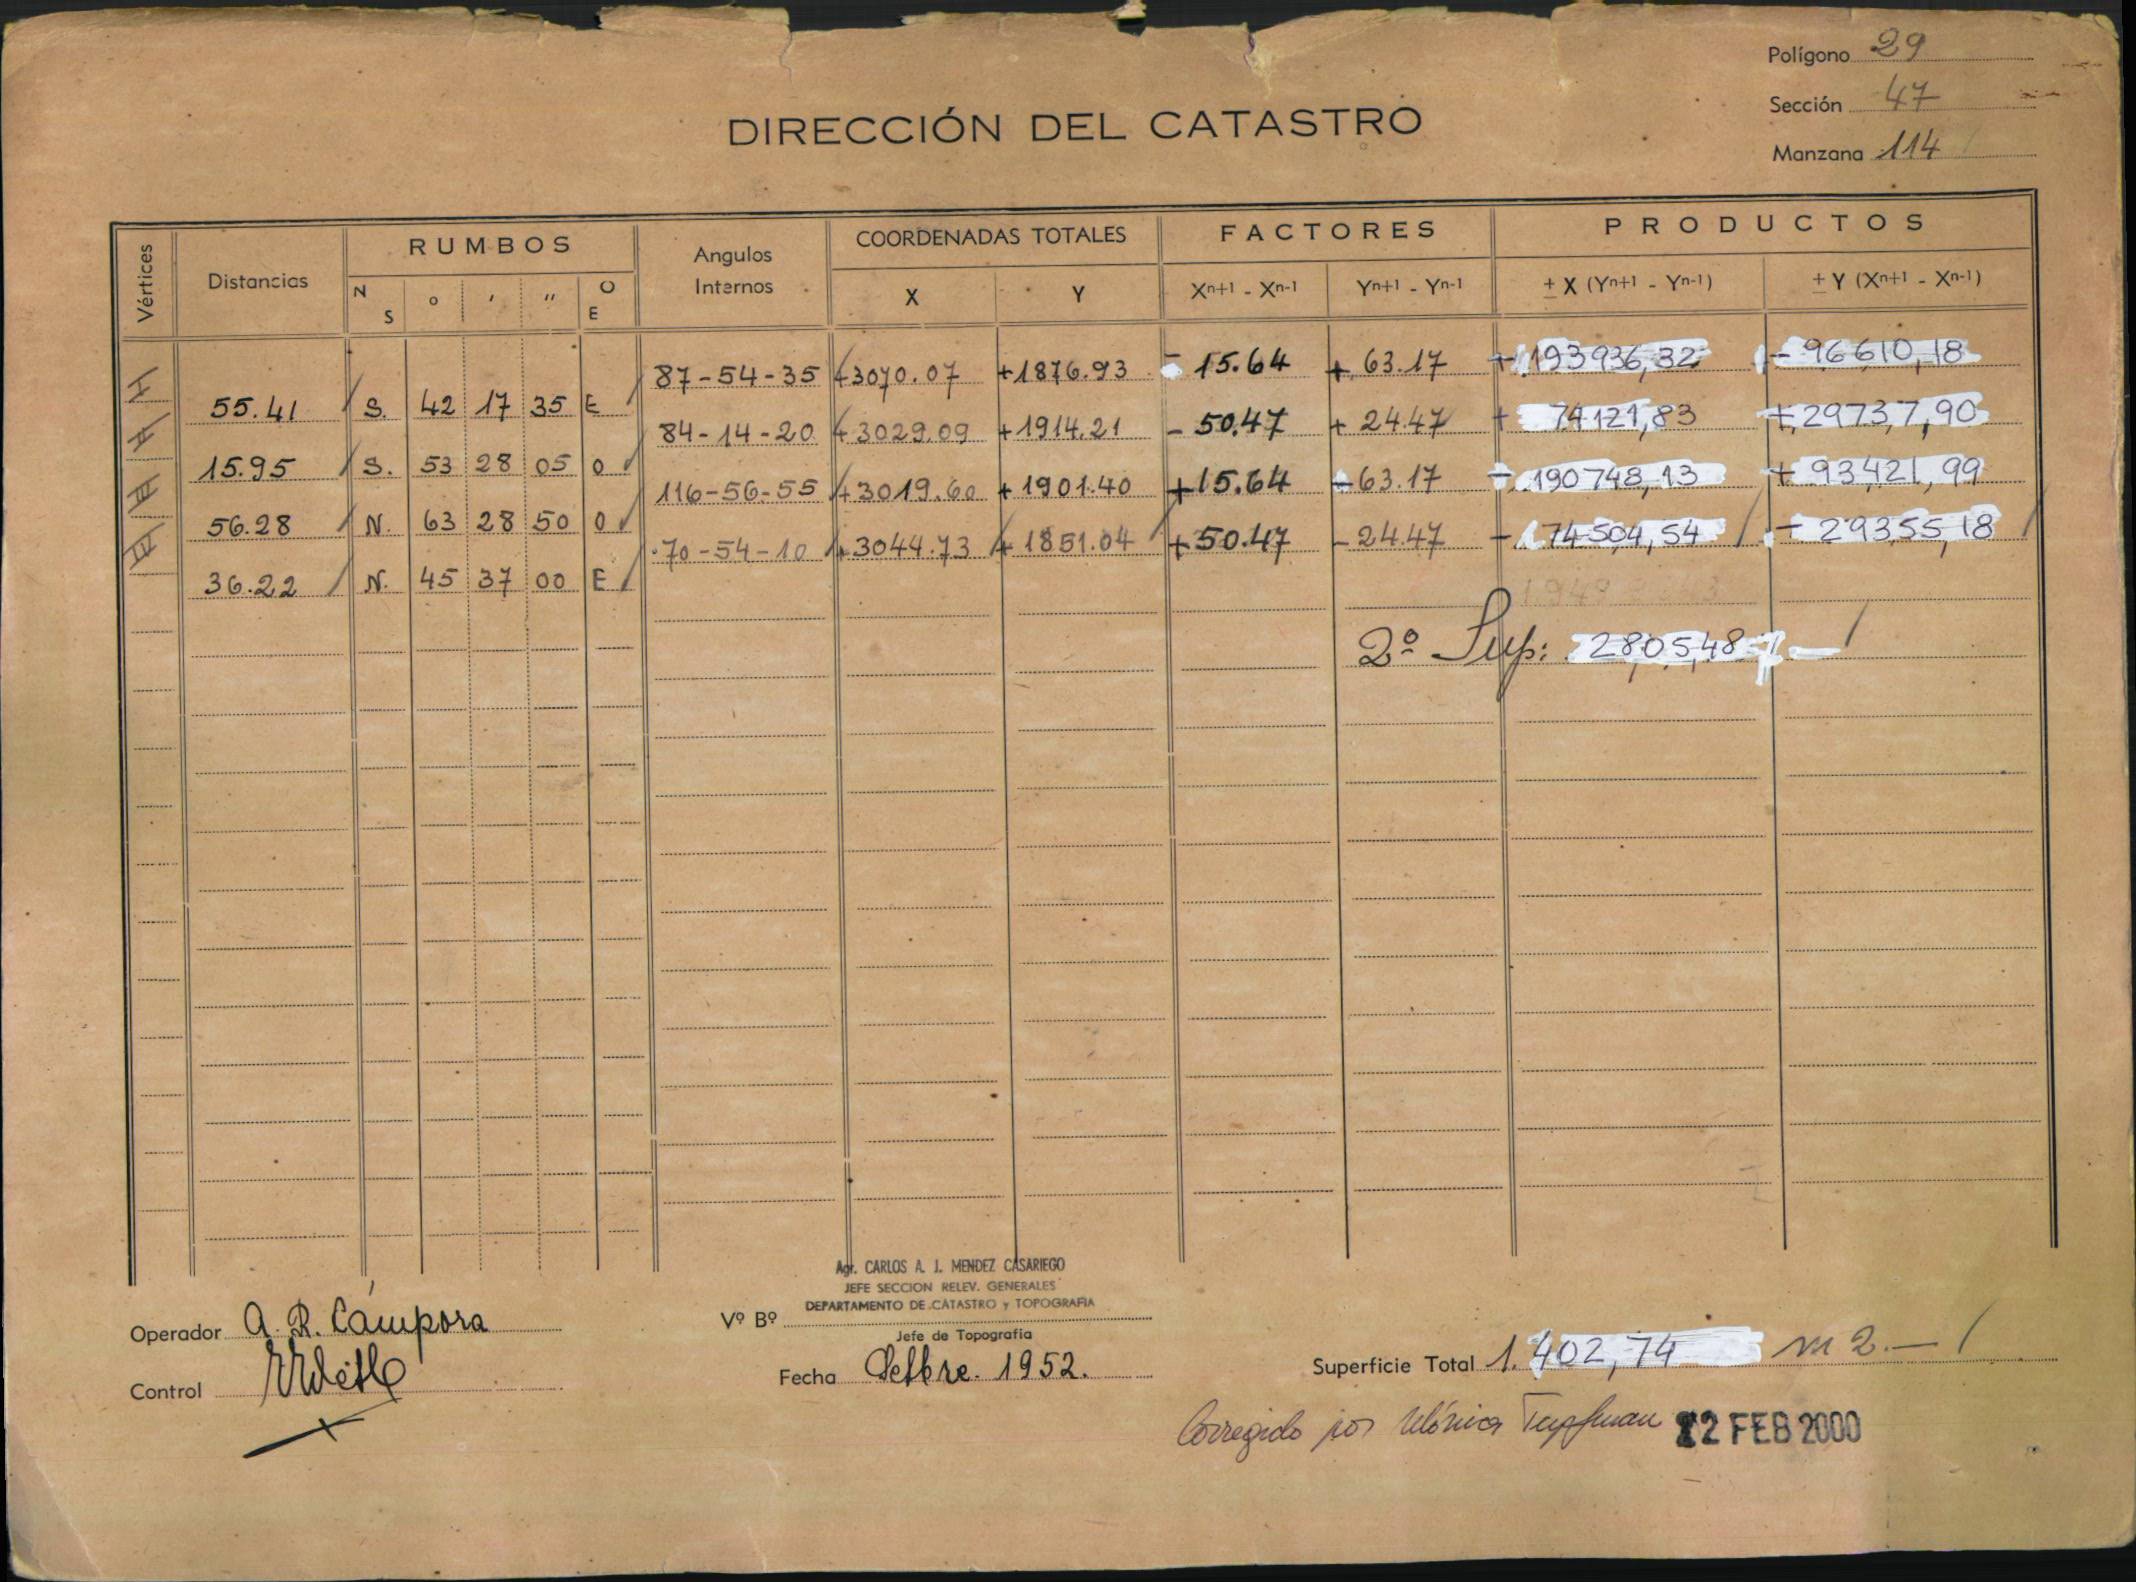 Polígono 29
Sección 47
Manzana 114
DIRECCIÓN DEL CATASTRO
Vértices Distancias RUMBOS Angulos Internos COORDENADAS TOTALES FACTORES PRODUCTOS
N S ° ' '' O E X Y Xn+1 - Xn-1 Yn+1 - Yn-1 ± X (Yn+1 - Yn-1) ± Y (Xn+1 - Xn-1)
I 87-54-35 +3070.07 +1876.93 - 15.64 + 63.17 + 193936,32 - 96610,18
55.41 S. 42 17 35 E
II 84-14-20 +3029.09 +1914.21 - 50.47 + 24.47 + 74121,83 + 29737,90
15.95 S. 53 28 05 O
III 116-56-55 +3019.60 +1901.40 +15.64 63.17 - 190748,13 + 93421,99
56.28 N. 63 28 50 O
IV 70-54-10 +3044.73 + 1851.04 +50.47 - 24.47 - 74504,54 - 29355,18
36.22 N. 45 37 00 E
2º Sup: 2805,48
Agr. CARLOS A. J. MENDEZ CASARIEGO
JEFE SECCION RELEV. GENERALES
DEPARTAMENTO DE CATASTRO y TOPOGRAFIA
Operador A. R. Cámpora
Vº Bº
Jefe de Topografía
Control
Fecha Setbre. 1952.
Superficie Total 1.402,74 m2.—
Corregido por Mónica 22 FEB 2000